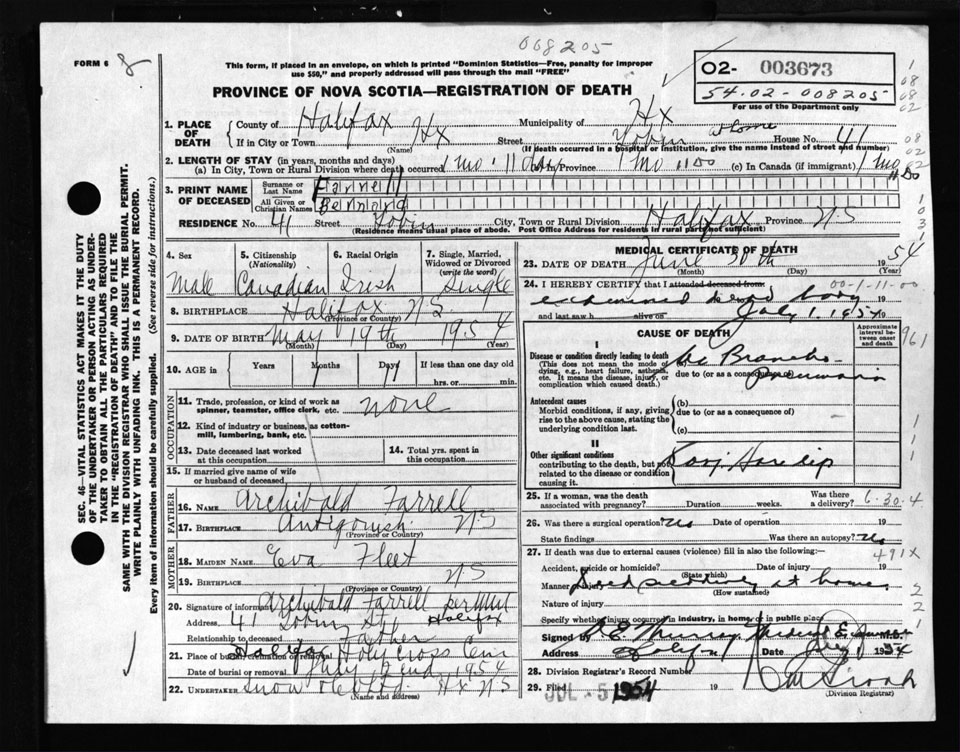 008205
FORM 6 8
This form, if placed in an envelope, on which is printed "Dominion Statistics—Free, penalty for improper
use $50," and properly addressed will pass through the mail "FREE"
O2- 003673
54.02-008205
For use of the Department only
PROVINCE OF NOVA SCOTIA—REGISTRATION OF DEATH
1. PLACE OF DEATH
County of Halifax Municipality of Hx
If in City or Town Hx (Name) Street Tobin at home House No. 41
(If death occurred in a hospital or institution, give the name instead of street and number)
2. LENGTH OF STAY (in years, months and days)
(a) In City, Town or Rural Division where death occurred 1 mo. 11 days (b) In Province 1 mo 11 Do (c) In Canada (if immigrant) 1 mo 11 Do
3. PRINT NAME OF DECEASED
Surname or Last Name Farrell
All Given or Christian Names Bernard
RESIDENCE No. 41 Street Tobin City, Town or Rural Division Halifax Province NS
(Residence means usual place of abode. Post Office Address for residents in rural parts not sufficient)
4. Sex Male
5. Citizenship (Nationality) Canadian
6. Racial Origin Irish
7. Single, Married, Widowed or Divorced (write the word) Single
8. BIRTHPLACE Halifax NS
(Province or Country)
9. DATE OF BIRTH May 19th 1954
(Month) (Day) (Year)
10. AGE in Years Months 1 Days 11 If less than one day
hrs. or min.
OCCUPATION
11. Trade, profession, or kind of work as
spinner, teamster, office clerk, etc. none
12. Kind of industry or business, as cotton-
mill, lumbering, bank, etc.
13. Date deceased last worked
at this occupation
14. Total yrs. spent in
this occupation
15. If married give name of wife
or husband of deceased
FATHER
16. Name Archibald Farrell
17. Birthplace Antigonish NS
(Province or Country)
MOTHER
18. Maiden Name Eva Fleet
19. Birthplace NS
(Province or Country)
20. Signature of informant Archibald Farrell per
Address 41 Tobin St Halifax
Relationship to deceased Father
21. Place of burial, cremation or removal Halifax Holy Cross Cem
Date of burial or removal July 2nd 1954
22. Undertaker Snow Hx NS
(Name and address)
MEDICAL CERTIFICATE OF DEATH
23. DATE OF DEATH June 30th 1954
(Month) (Day) (Year)
24. I HEREBY CERTIFY that I attended deceased from: 00-1-11-00
examined dead body
and last saw h alive on July 1. 1954
CAUSE OF DEATH
Approximate interval between onset and death
I
Disease or condition directly leading to death
(This does not mean the mode of dying, e.g., heart failure, asthenia, etc. It means the disease, injury, or complication which caused death.)
(a) Broncho-
due to (or as a consequence of) pneumonia
Antecedent causes
Morbid conditions, if any, giving rise to the above cause, stating the underlying condition last.
(b)
due to (or as a consequence of)
(c)
II
Other significant conditions
contributing to the death, but not related to the disease or condition causing it.
Conj. Harelip
25. If a woman, was the death
associated with pregnancy? Duration weeks. Was there a delivery? 6.30.4
26. Was there a surgical operation? No Date of operation 19
State findings Was there an autopsy? No
27. If death was due to external causes (violence) fill in also the following:— 491X
Accident, suicide or homicide? (State which) Date of injury 19
Manner of injury at home
(How sustained)
Nature of injury
Specify whether injury occurred in industry, in home, or in public place
Signed by E. Murray M.D.
Address Halifax Date July 1 1954
28. Division Registrar's Record Number
29. Filed JUL - 5 1954 19
(Division Registrar)
SEC. 46—VITAL STATISTICS ACT MAKES IT THE DUTY
OF THE UNDERTAKER OR PERSON ACTING AS UNDER-
TAKER TO OBTAIN ALL THE PARTICULARS REQUIRED
IN THE "REGISTRATION OF DEATH" AND TO FILE THE
SAME WITH THE DIVISION REGISTRAR WHO SHALL ISSUE THE BURIAL PERMIT.
WRITE PLAINLY WITH UNFADING INK. THIS IS A PERMANENT RECORD.
Every item of information should be carefully supplied. (See reverse side for instructions.)